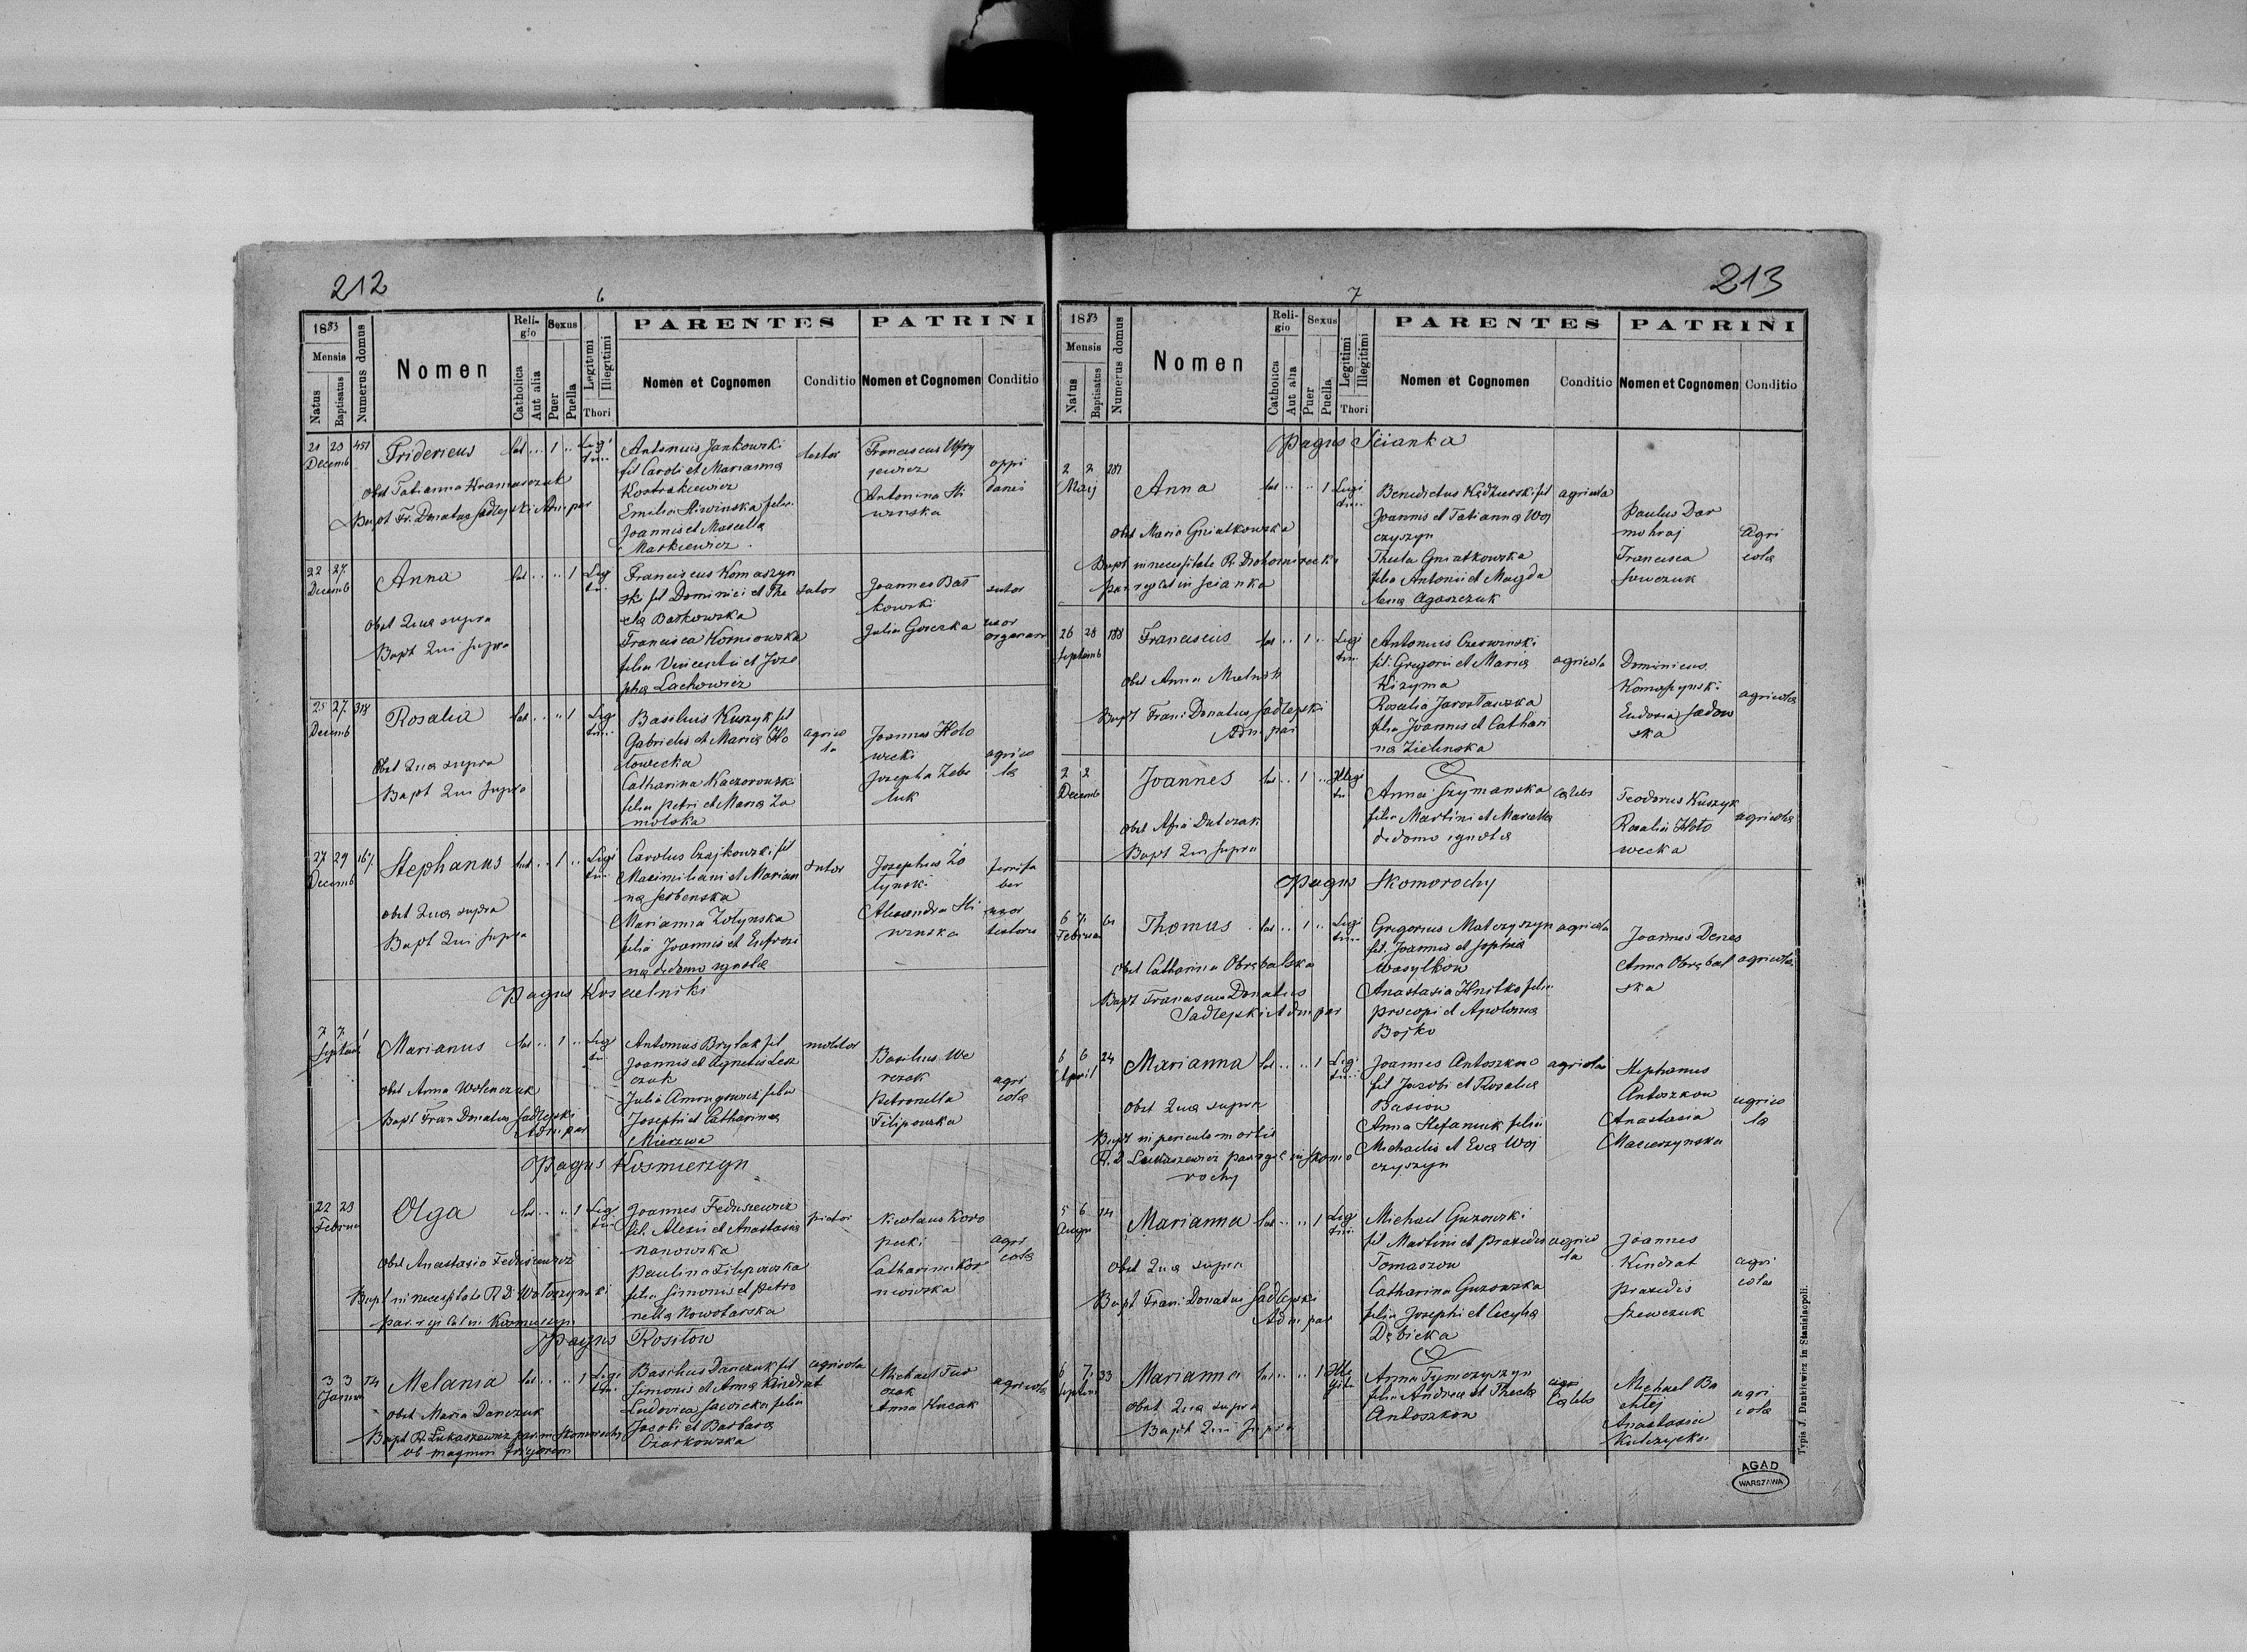 212
6
1883
Mensis
Natus
Baptisatus
Numerus domus
Nomen
Religio
Catholica
Aut alia
Sexus
Puer
Puella
Legitimi
Illegitimi
Thori
PARENTES
Nomen et Cognomen
Conditio
PATRINI
Nomen et Cognomen
Conditio
21 23 451
Decemb
Fridericus
lat .. 1 ..
Legi
tim.
Obst Tatianna Kramarczuk
Bapt Fr. Donatus Sadlejski Adm. par
Antonius Jankowski
fil Caroli et Marianna
Kostrakiewicz
Emilia Sliwinska filia
Joannis et Marcella
Markiewicz
Franciscus
jewicz
Antonina Sli
winska
oppi
danis
22 27
Decemb
Anna
lat .. .. 1
Legi
tim.
Obst Qua supra
Bapt Qui supra
Franciscus Komaszyn
ski fil Dominici et The
cla Barkowska
Francisca Korniowska
filia Vincentii et Joze
pha Lachowicz
sutor
Joannes Bał
kowski
Julia Goreczka
sutor
uxor
organar
25 27 318
Decemb
Rosalia
lat .. .. 1
Legi
tim.
Obst Qua supra
Bapt Qui supra
Basilius Kuszyk fil
Gabrielis et Maria Ho
łowecka
Catharina Kaczorowski
filia Petri et Maria Za
molska
agrico
la
Joannes Holo
wecki
Josepha Zebr
luk
agrico
la
27 29 167
Decemb
Stephanus
lat .. 1 ..
Legi
tim.
Obst Qua supra
Bapt Qui supra
Carolus Czajkowski fil
Maximiliani et Marian
na Serbenska
Marianna Zołynska
filia Joannis et Eufrosi
na de domo ignota
sutor
Josephus Zo
łynski
Alexandra Sli
winska
uxor
textoris
Pagus Koscielniki
7 7 1
Septemb
Marianus
lat .. 1 ..
Legi
tim.
Obst Anna Wolenczuk
Bapt Fran Donatus Sadlejski
Adm par
Antonius Brylak fil
Joannis et Agnetis Lesz
czuk
Julia filia
Josephi et Catharina
Mierzwa
molitor
Basilius We
rezak
Petronella
Filipowska
agri
cola
Pagus Kosmierzyn
22 23
Februa
Olga
lat .. .. 1
Legi
tim
Obst Anastasia Feduszewicz
Bapt in necessitate R. D. Wołoszynski
par. r. gr. cat. in Kosmierzyn
Joannes Feduszewicz
fil. Alexii et Anastasia
Nanowska
Paulina Filipowska
filia Simonis et Petro
nella Nowotarska
pictor
Nicolaus Koro
pecki
Catharina Kor
niowska
agri
cola
Pagus Rosiłow
3 3 74
Janua
Melania
lat .. .. 1
Legi
tim.
Obst Maria Danczuk
Bapt R. Lukaszewicz par. in Skomorochy
ob magnum frigorem
Basilius Danczuk fil
Simonis et Anna Kindrat
Ludovica Sawicka filia
Jacobi et Barbara
Czarkowska
agricola
Michael Fur
czak
Anna Kucak
agricola
213
7
1883
Mensis
Natus
Baptisatus
Numerus domus
Nomen
Religio
Catholica
Aut alia
Sexus
Puer
Puella
Legitimi
Illegitimi
Thori
PARENTES
Nomen et Cognomen
Conditio
PATRINI
Nomen et Cognomen
Conditio
Pagus Scianka
2 2 287
Maij
Anna
lat .. .. 1
Legi
tim.
Obst Maria Gniatkowska
Bapt in necessitate R. Drohomirecki
par. r. gr. cat. in Scianka
Benedictus Kędzierski fil
Joannis et Tatianna Woj
czyszyn
Thecla Gniatkowska
filia Antonii et Magda
lena Agaszczuk
agricola
Paulus Dar
mohraj
Francisca
Sawczuk
Agri
cola
26 28 188
Septemb
Franciscus
lat .. 1 ..
Legi
tim.
Obst Anna Melnik
Bapt Franc Donatus Sadlejski
Adm par
Antonius Czerwinski
fil. Gregorii et Maria
Kizyma
Rosalia Jarosławska
filia Joannis et Cathari
na Zielinska
agricola
Dominicus
Komaszynski
Eudoxia Sadow
ska
agricola
2 2
Decemb
Joannes
lat .. 1 ..
Illegi
tim
Obst Dutczak
Bapt Qui supra
Anna Szymanska
filia Martini et Marcella
de domo ignota
Cælebs
Teodorus Kuszyk
Rosalia Hoło
wecka
agricola
Pagus Skomorochy
6 7 61
Februar
Thomas
lat .. 1 ..
Legi
tim.
Obst Catharina Obrębalska
Bapt Franciscus Donatus
Sadlejski Adm par
Gregorius Matczyszyn
fil. Joannis et Sophia
Wasylkow
Anastasia Hnitko filia
Procopi et Apolonia
Bojko
agricola
Joannes Denes
Anna Obrębal
ska
agricola
6 6 24
April
Marianna
lat .. .. 1
Legi
tim.
Obst Qua supra
Bapt in periculo mortis
R. D. Lukaszewicz par. r. gr. c. in Skomo
rochy
Joannes Antoszkow
fil Jacobi et Rosalia
Basiow
Anna Stefaniuk filia
Michaelis et Eva Woj
czyszyn
agricola
Stephanus
Antoszkow
Anastasia
Macierzynska
agrico
la
5 6 14
Augu
Marianna
lat .. .. 1
Legi
tim.
Obst Qua supra
Bapt Franc Donatus Sadlejski
Adm par
Michael Guzowski
fil Martini et Praxedis
Tomaszow
Catharina Guzowska
filia Josephi et Cecylia
Dębicka
agrico
la
Joannes
Kindrat
Praxedis
Szewczuk
agri
cola
6 7 33
Septem
Marianna
lat .. .. 1
Ille
giti
Obst Qua supra
Bapt Qui supra
Anna Tymczyszyn
filia Andrea et Thecla
Antoszkow
Cælebs
Michael Ba
chtej
Anastasia
Kulczycka
agri
cola
Typis J. Dankiewicz in Stanislaopoli.
AGAD
WARSZAWA